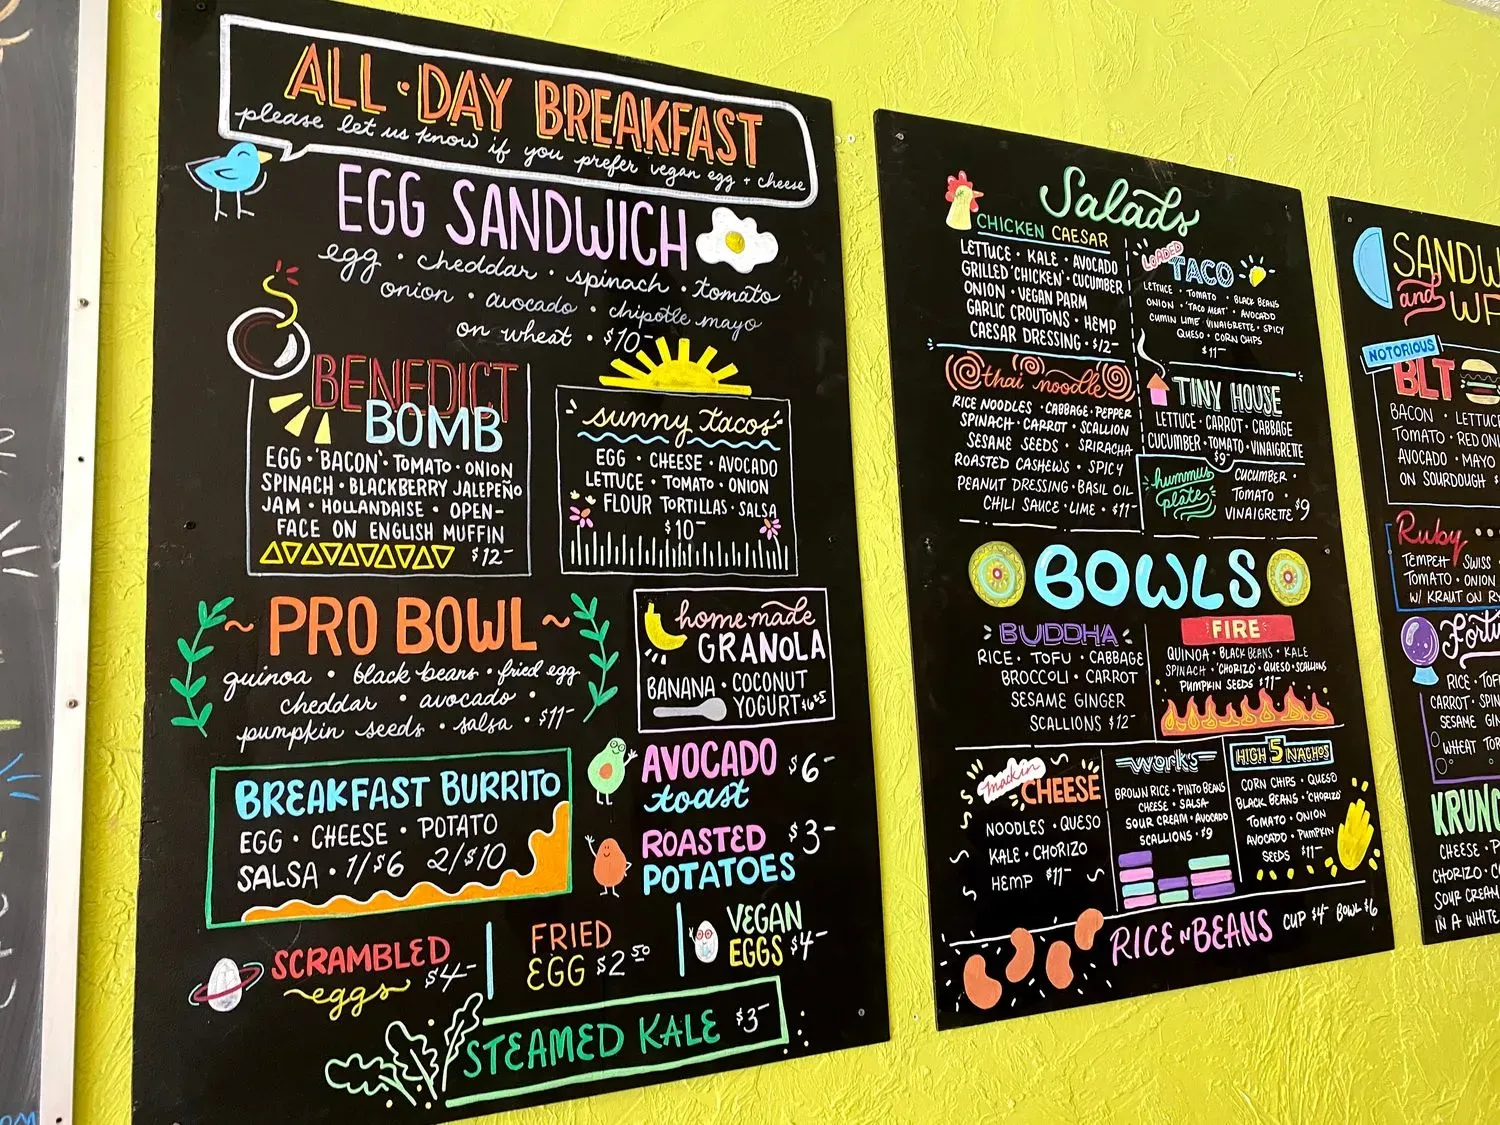 ALL·DAY BREAKFAST
please let us know if you prefer vegan egg + cheese
EGG SANDWICH
egg · cheddar · spinach · tomato
onion · avocado · chipotle mayo
on wheat · $10-
BENEDICT
BOMB
EGG · 'BACON' · TOMATO · ONION
SPINACH · BLACKBERRY JALEPEÑO
JAM · HOLLANDAISE · OPEN-
FACE ON ENGLISH MUFFIN
$12-
sunny tacos
EGG · CHEESE · AVOCADO
LETTUCE · TOMATO · ONION
FLOUR TORTILLAS · SALSA
$10-
~PRO BOWL~
quinoa · black beans · fried egg
cheddar · avocado ·
pumpkin seeds · salsa · $11-
homemade
GRANOLA
BANANA · COCONUT
YOGURT $6.25
BREAKFAST BURRITO
EGG · CHEESE · POTATO
SALSA · 1/$6 2/$10
AVOCADO $6-
toast
ROASTED $3-
POTATOES
SCRAMBLED
eggs $4-
FRIED
EGG $2.50
VEGAN
EGGS $4-
STEAMED KALE $3-
Salads
CHICKEN CAESAR
LETTUCE · KALE · AVOCADO
GRILLED 'CHICKEN' · CUCUMBER
ONION · VEGAN PARM
GARLIC CROUTONS · HEMP
CAESAR DRESSING · $12-
LOADED
TACO
LETTUCE · TOMATO · BLACK BEANS
ONION · 'TACO MEAT' · AVOCADO
CUMIN LIME VINAIGRETTE · SPICY
QUESO · CORN CHIPS
$11-
thai noodle
RICE NOODLES · CABBAGE · PEPPER
SPINACH · CARROT · SCALLION
SESAME SEEDS · SRIRACHA
ROASTED CASHEWS · SPICY
PEANUT DRESSING · BASIL OIL
CHILI SAUCE · LIME · $11-
TINY HOUSE
LETTUCE · CARROT · CABBAGE
CUCUMBER · TOMATO · VINAIGRETTE
$9-
hummus
plate
CUCUMBER ·
TOMATO ·
VINAIGRETTE $9
BOWLS
BUDDHA
RICE · TOFU · CABBAGE
BROCCOLI · CARROT
SESAME GINGER
SCALLIONS $12-
FIRE
QUINOA · BLACK BEANS · KALE
SPINACH · 'CHORIZO' · QUESO · SCALLIONS
PUMPKIN SEEDS $11-
mackin
CHEESE
NOODLES · QUESO
KALE · CHORIZO
HEMP $11-
works
BROWN RICE · PINTO BEANS
CHEESE · SALSA
SOUR CREAM · AVOCADO
SCALLIONS · $9
HIGH 5 NACHOS
CORN CHIPS · QUESO
BLACK BEANS · 'CHORIZO'
TOMATO · ONION
AVOCADO · PUMPKIN
SEEDS $11-
RICE N BEANS CUP $4- BOWL $6
SANDW
and WR
NOTORIOUS
BLT
BACON · LETTUCE
TOMATO · RED ONI
AVOCADO · MAYO
ON SOURDOUGH $
Ruby
TEMPEH SWISS
TOMATO · ONION
W/ KRAUT ON RY
Fortu
RICE · TOF
CARROT · SPIN
SESAME GIN
WHEAT TOR
KRUNC
CHEESE · P
CHORIZO · C
SOUR CREAM
IN A WHITE